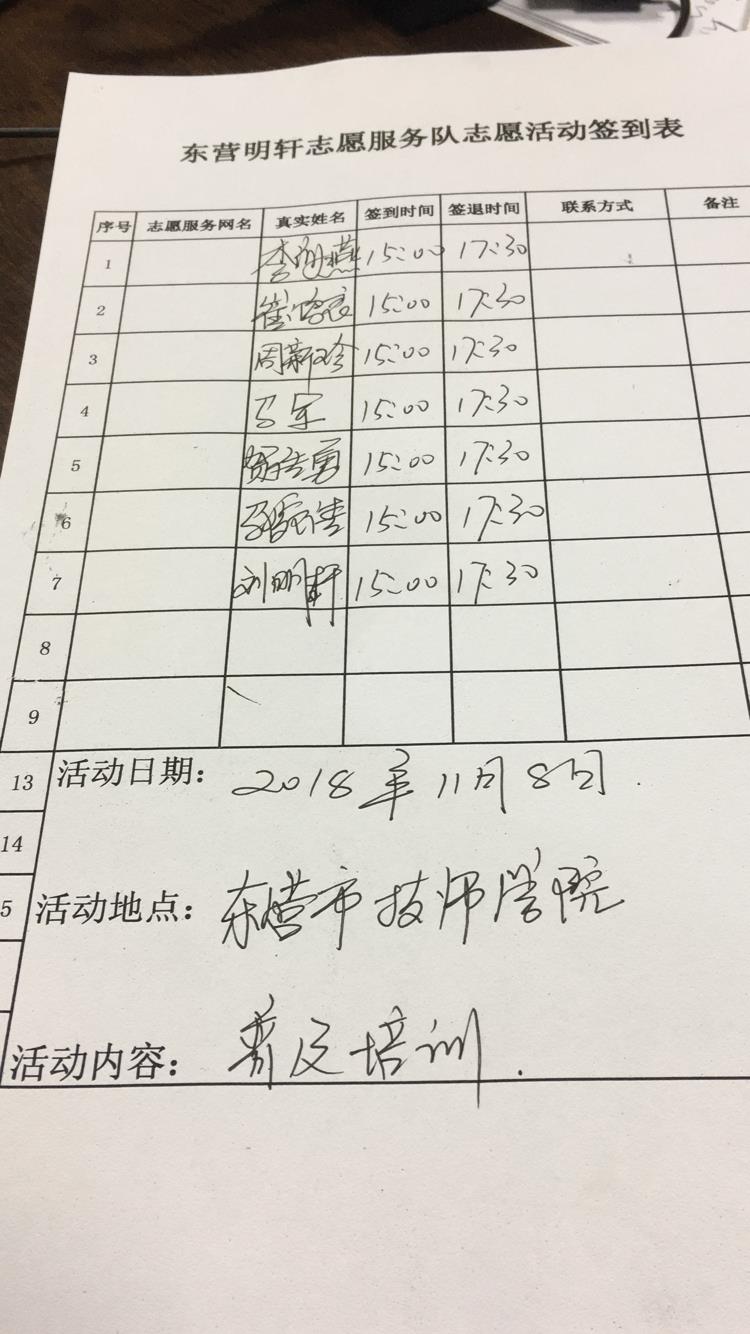 东营明轩志愿服务队志愿活动签到表
序号 志愿服务网名 真实姓名 签到时间 签退时间 联系方式 备注
1 15:00 17:30
2 15:00 17:30
3 周新珍 15:00 17:30
4 马军 15:00 17:30
5 15:00 17:30
6 15:00 17:30
7 刘明轩 15:00 17:30
8
9
13 活动日期: 2018年11月8日.
14
5 活动地点: 东营市技师学院
活动内容: 普及培训.